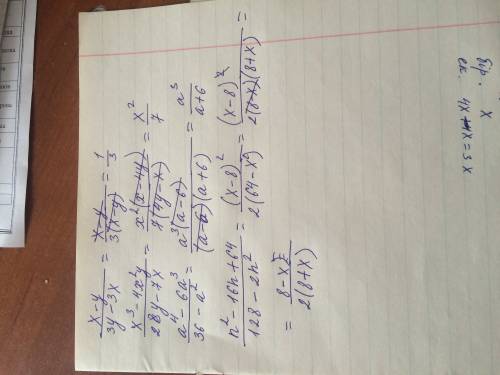 x-y / 3y-3x = x-y / 3(x-y) = 1/3
x³-4x²y / 28y-7x = x²(x-4y) / 7(4y-x) = x²/7
a⁴-6a³ / 36-a² = a³(a-6) / (a-6)(a+6) = a³ / a+6
n²-16n+64 / 128-2n² = (x-8)² / 2(64-x²) = (x-8)² / 2(8-x)(8+x) =
= 8-x / 2(8+x)
x
4x-x=3x